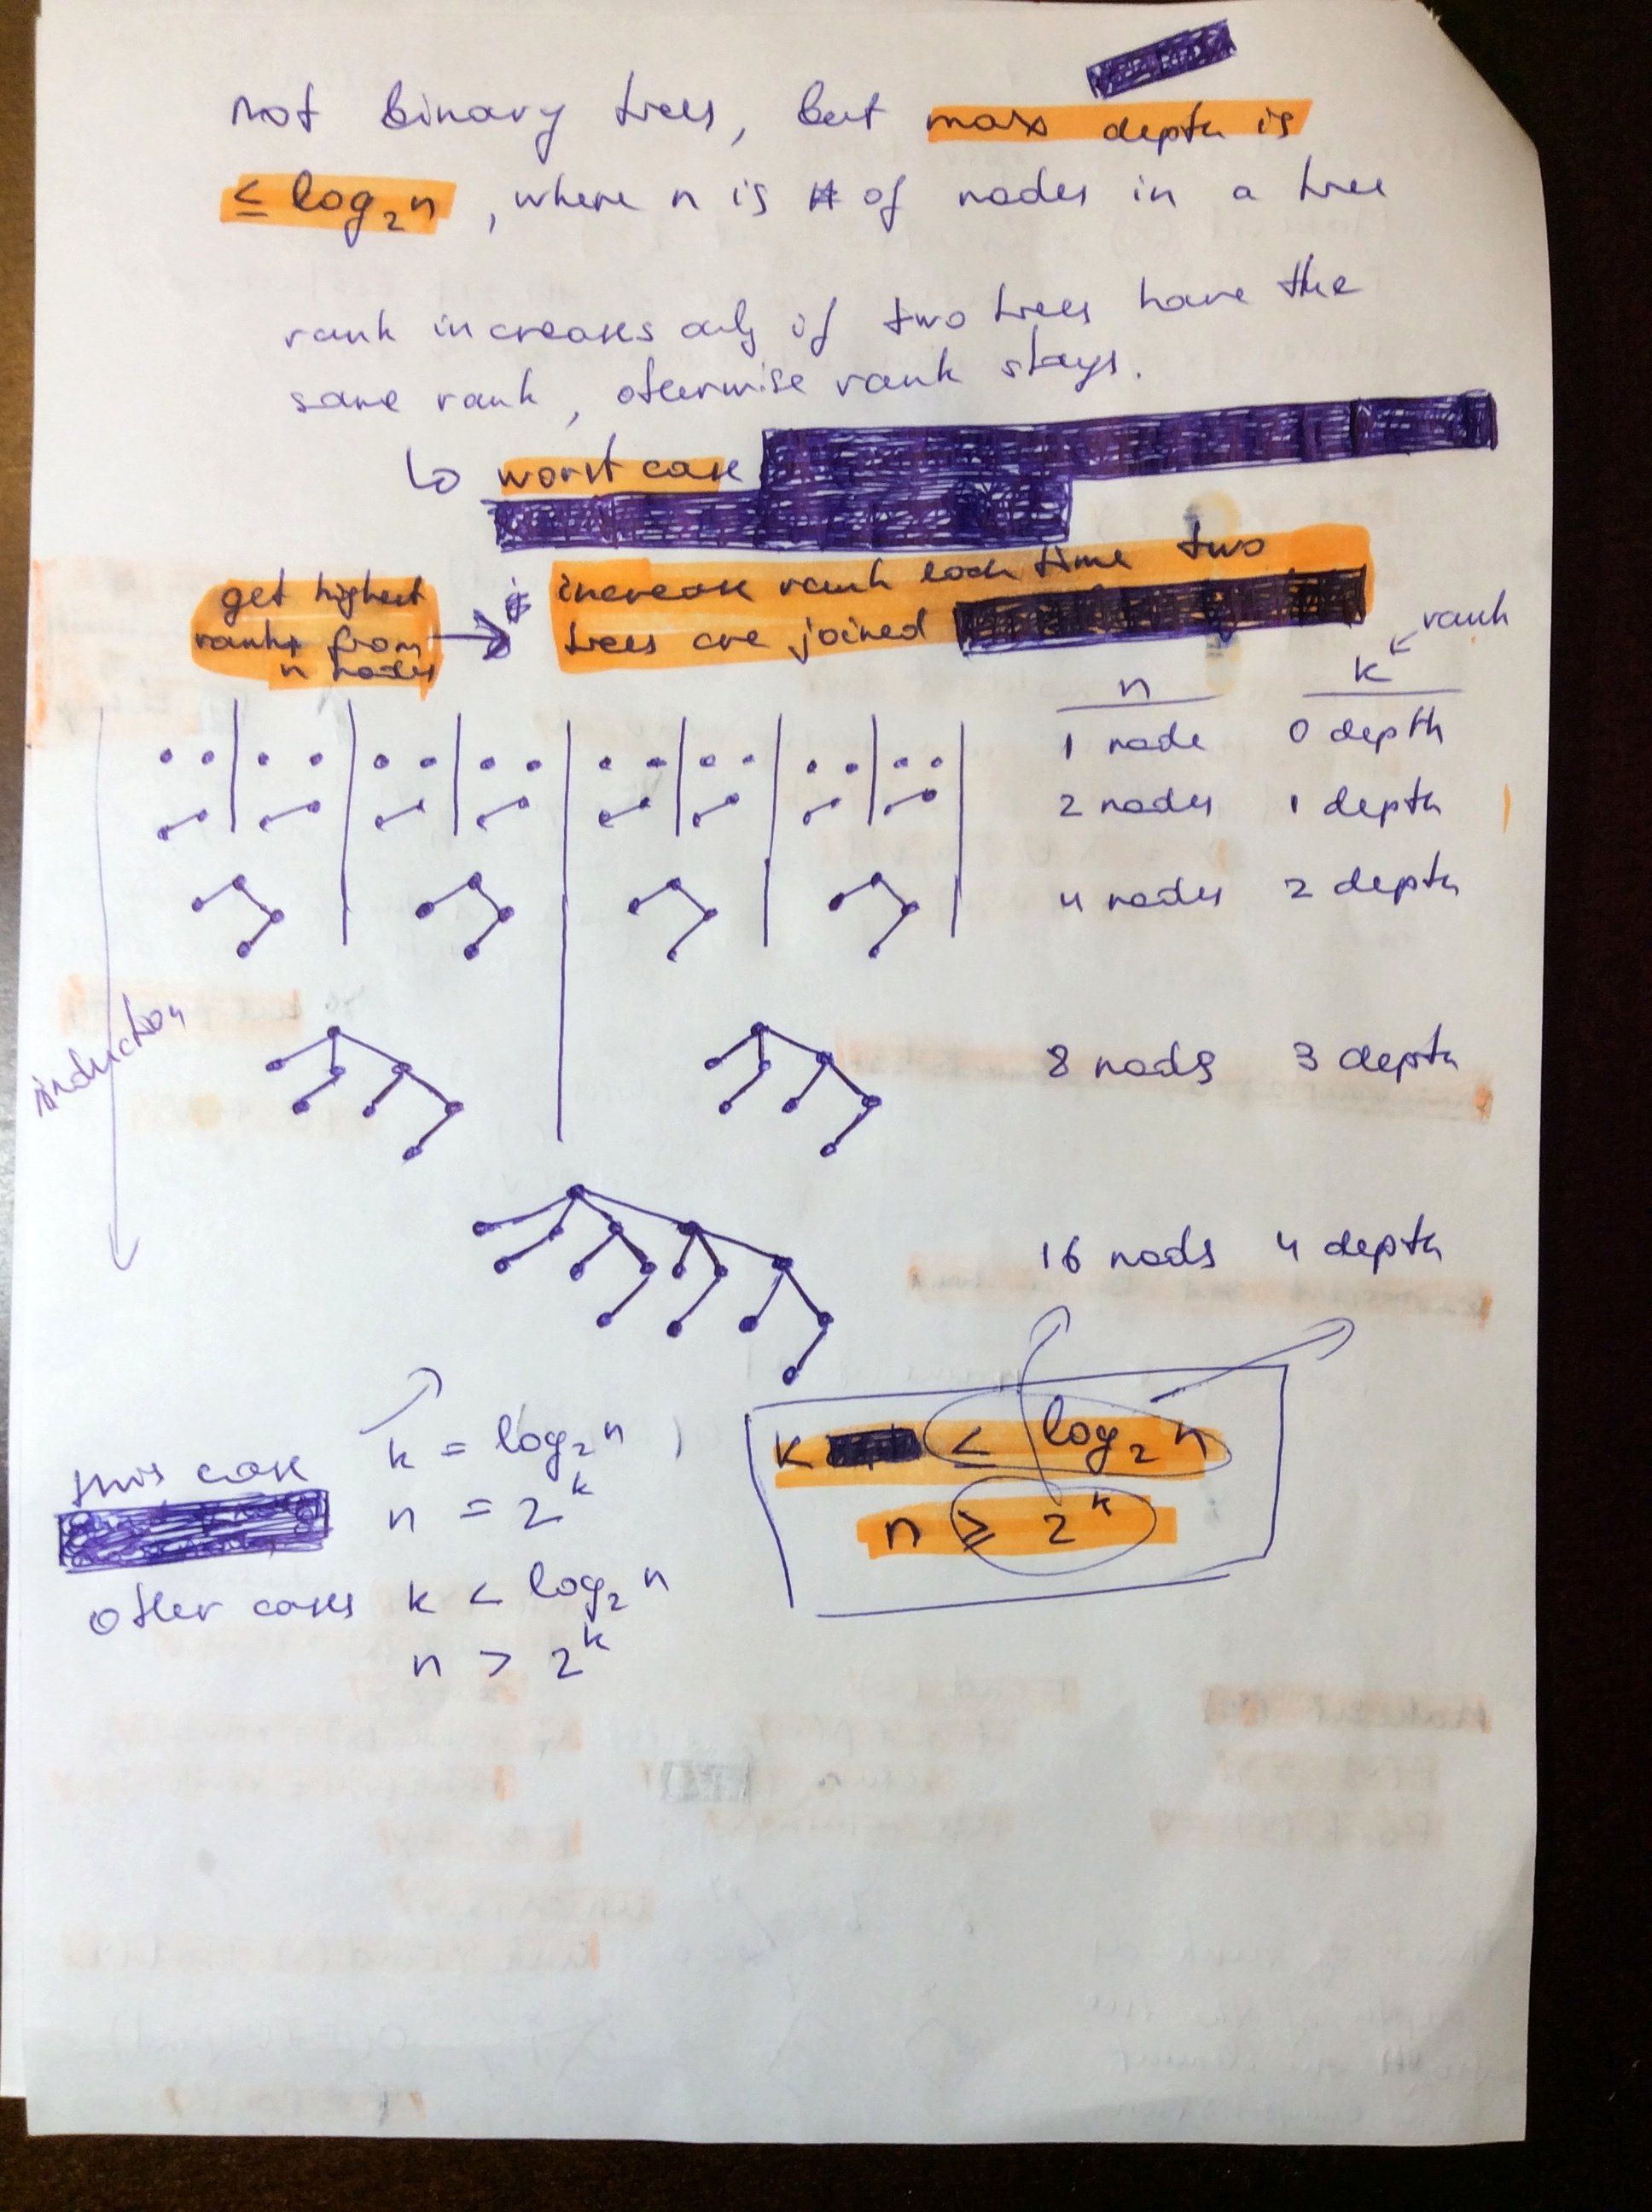 not binary trees, but max depth is
≤ log₂n, where n is # of nodes in a tree
rank increases only if two trees have the
same rank, oterwise rank stays.
↳ worst case
get highest
rank from
n nodes
→
increase rank each time two
trees are joined
rank
n k
1 node 0 depth
2 nodes 1 depth
4 nodes 2 depth
induction
8 nods 3 depth
16 nods 4 depth
this case k = log₂n,
n = 2ᵏ
other cases k < log₂n
n > 2ᵏ
k ≤ log₂n
n ≥ 2ᵏ